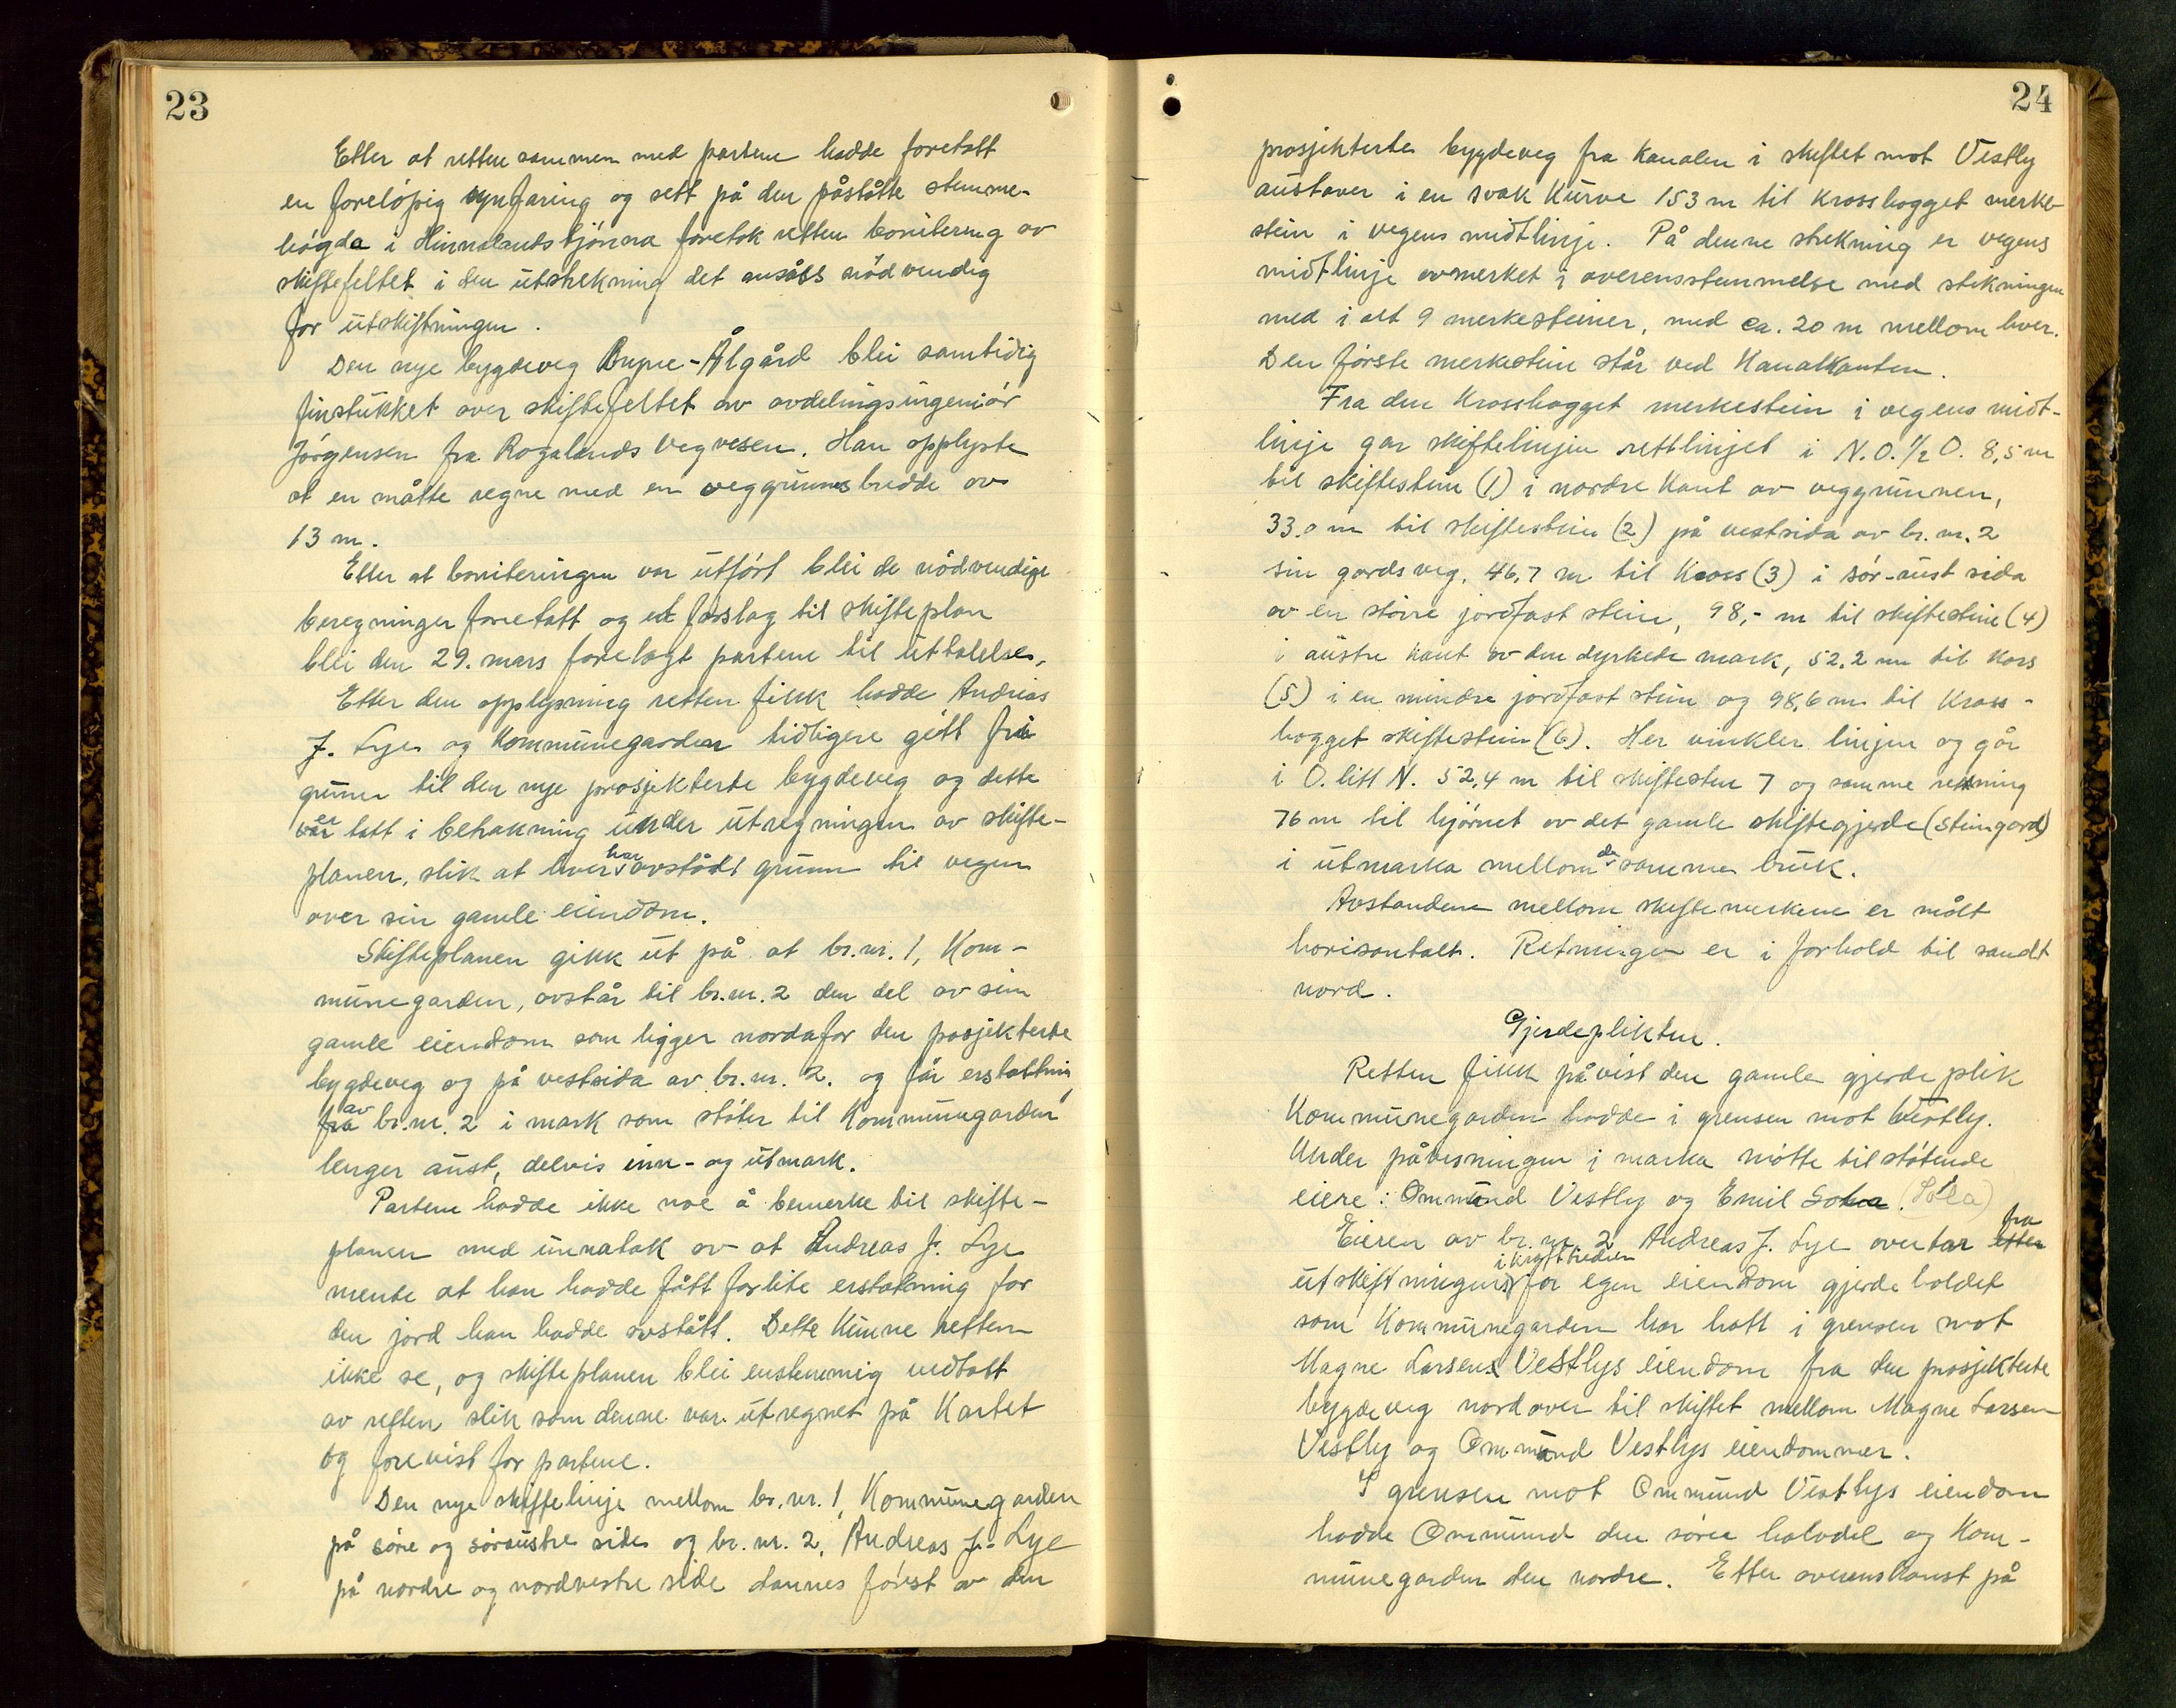 23
Etter at retten sammen med partene hadde foretatt
en foreløpig synfaring og sett på den påståtte stemme-
høgda i Hinnalandstjørna foretok retten bonitering av
skiftefeltet i den utstrekning det ansåes nødvendig
for utskiftningen.
Den nye bygdeveg Bryne-Ålgård blei samtidig
finstukket over skiftefeltet av avdelingsingeniør
Jørgensen fra Rogalands Vegvesen. Han opplyste
at en måtte regne med en veggrunnsbredde av
13 m.
Etter at boniteringen var utført blei de nødvendige
beregninger foretatt og et forslag til skifteplan
blei den 29. mars forelagt partene til uttalelse.
Etter den opplysning retten fikk hadde Andreas
J. Lye og Kommunegarden tidligere gitt fri
grunn til den nye prosjekterte bygdeveg og dette
er tatt i betrakning under utregningen av skifte-
planen, slik at hver har avstådt grunn til vegen
over sin gamle eiendom.
Skifteplanen gikk ut på at br.nr. 1, Kom-
munegarden, avstår til br.nr. 2 den del av sin
gamle eiendom som ligger nordafor den posjekterte
bygdeveg og på vestsida av br.nr. 2. og får erstattnin
fra av br.nr. 2 i mark som støter til Kommunegarden
lenger aust, delvis inn- og utmark.
Partene hadde ikke noe å bemerke til skifte-
planen med unnatak av at Andreas J. Lye
mente at han hadde fått forlite erstatning for
den jord han hadde avstått. Dette kunne retten
ikke se, og skifteplanen blei enstemmig vedtatt
av retten slik som denne var utregnet på Kartet
og forevist for partene.
Den nye skiftelinje mellom br.nr. 1, Kommunegarden
på søre og søraustre side og br. nr. 2, Andreas J. Lye
på nordre og nordvestre side dannes først av den
24
prosjekterte bygdeveg fra Kanalen i skiftet mot Vestly
austover i en svak Kurve 153 m til krosshogget merke-
stein i vegens midtlinje. På denne strekning er vegens
midtlinje avmerket i overensstemmelse med stekningen
med i alt 9 merkesteiner, med ca. 20 m mellom hver.
Den første merkestein står ved Kanalkanten.
Fra den Krosshogget merkestein i vegens midt-
linje gar skiftelinjen rettlinjet i N.O. 1/2 O. 8,5 m
til skiftestein (1) i nordre Kant av veggrunnen,
33.0 m til skiftestein (2) på vestsida av br. nr. 2
sin gards veg, 46,7 m til Kross (3) i sør-aust sida
av en større jordfast stein, 98,- m til skiftestein (4)
i austre kant av den dyrkede mark, 52,2 m til kors
(5) i en mindre jordfast stein og 98,6 m til Kross-
hogget skiftestein (6). Her vinkler linjen og går
i O. litt N. 52,4 m til skiftesten 7 og samme retning
76 m til hjørnet av det gamle skiftegjerde (Steingard)
i utmarka mellom de samme bruk.
Avstandene mellom skiftemerkene er målt
horisontalt. Retningen er i forhold til sandt
nord.
Gjerdeplikten.
Retten fikk påvist den gamle gjerdeplik
Kommunegarden hadde i grensen mot Vestly.
Under påvisningen i marka møtte tilstøtende
eiere: Ommund Vestly og Emil Sola. (Sola)
Eieren av br. nr. 2 Andreas J. Lye overtar etter fra
utskiftningens ikrafttreden for egen eiendom gjerdeholdet
som Kommunegarden har hatt i grensen mot
Magne Larsens Vestlys eiendom fra den prosjekterte
bygdeveg nordover til skiftet mellom Magne Larsen
Vestly og Ommund Vestlys eiendommer.
I grensen mot Ommund Vestlys eiendom
hadde Ommund den søre halvdel og Kom-
munegarden den nordre. Etter overenskomst på